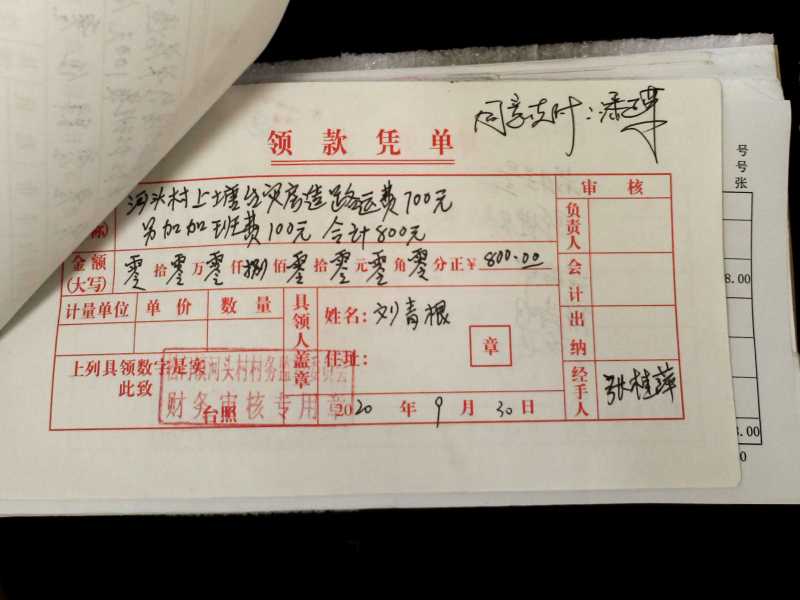 同意支付：潘
领款凭单
河头村上 造路运费700元
另加加班费100元 合计800元
金额(大写) 零拾零万零仟捌佰零拾零元零角零分正￥800.00
计量单位 单价 数量
具领人盖章
姓名：刘青根
住址：
章
上列具领数字是实
此致
台照
2020年9月30日
河头村村务监 委员会
财务审核专用章
审核
负责人
会计
出纳
经手人 张桂萍
号
号
张
8.00
8.00